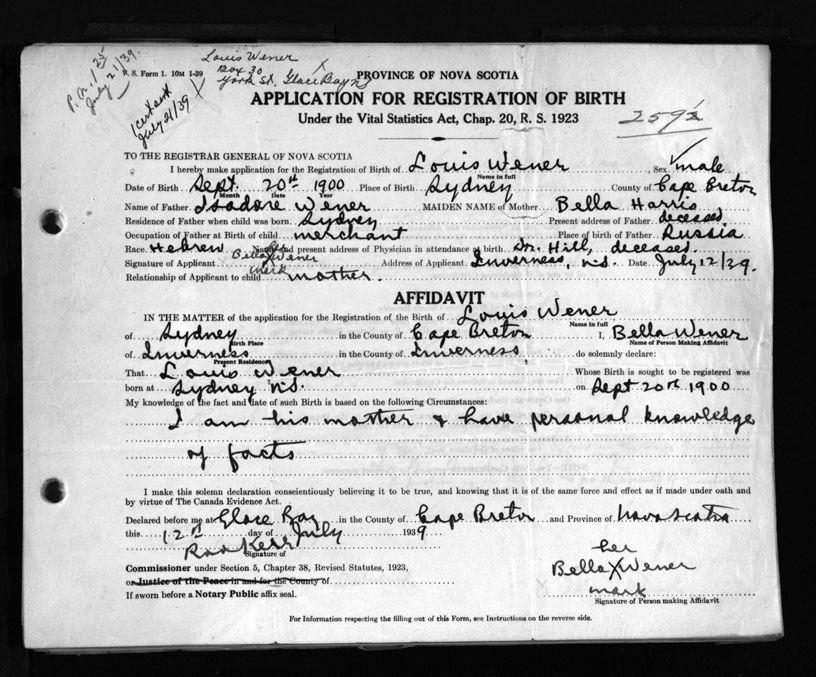 P.N. 1 25
July 21/39.
1 cert sent
July 21/39
Louis Wener
Box 30
York St. Glace Bay NS
R. S. Form 1. 10M 1-39
PROVINCE OF NOVA SCOTIA
APPLICATION FOR REGISTRATION OF BIRTH
Under the Vital Statistics Act, Chap. 20, R. S. 1923
TO THE REGISTRAR GENERAL OF NOVA SCOTIA
I hereby make application for the Registration of Birth of Louis Wener Sex male
Name in full
Date of Birth Sept. 20th 1900 Place of Birth Sydney County of Cape Breton
Month Date Year
Name of Father Isadore Wener MAIDEN NAME of Mother Bella Harris
Residence of Father when child was born Sydney Present address of Father deceased
Occupation of Father at Birth of child merchant Place of birth of Father Russia
Race Hebrew Name and present address of Physician in attendance at birth Dr. Hill, deceased.
Signature of Applicant Bella X Wener Address of Applicant Inverness, N.S. Date July 12/39.
mark
Relationship of Applicant to child mother.
AFFIDAVIT
IN THE MATTER of the application for the Registration of the Birth of Louis Wener
Name in full
of Sydney in the County of Cape Breton I, Bella Wener
Birth Place Name of Person Making Affidavit
of Inverness in the County of Inverness, do solemnly declare:
Present Residence
That Louis Wener Whose Birth is sought to be registered was
born at Sydney N.S. on Sept 20th 1900
My knowledge of the fact and date of such Birth is based on the following Circumstances:
I am his mother & have personal knowledge
of facts
I make this solemn declaration conscientiously believing it to be true, and knowing that it is of the same force and effect as if made under oath and
by virtue of The Canada Evidence Act.
Declared before me at Glace Bay in the County of Cape Breton and Province of Nova Scotia
this 12th day of July 1939
Kerr
Signature of
Commissioner under Section 5, Chapter 38, Revised Statutes, 1923,
or Justice of the Peace in and for the County of
If sworn before a Notary Public affix seal.
her
Bella X Wener
mark
Signature of Person making Affidavit
For Information respecting the filling out of this Form, see Instructions on the reverse side.